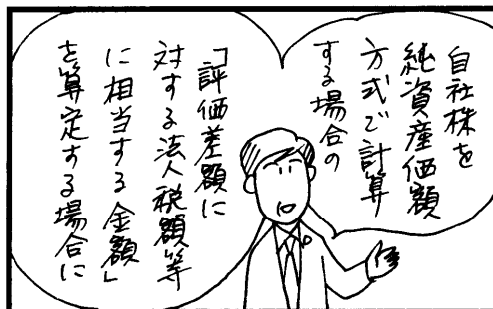 自社株を
純資産価額
方式で計算
する場合の
「評価差額に
対する法人税額等
に相当する金額」
を算定する場合に